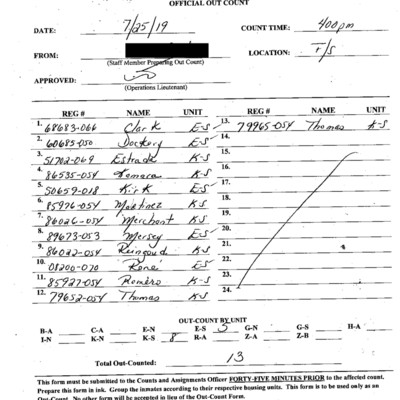 OFFICIAL OUT COUNT
DATE: 7/25/19 COUNT TIME: 400pm
FROM: LOCATION: F/S
(Staff Member Preparing Out Count)
APPROVED:
(Operations Lieutenant)
REG # NAME UNIT REG # NAME UNIT
1. 68683-066 Clark E-S 13. 79965-054 Thomas K-S
2. 60685-050 Dockery E-S 14.
3. 51702-069 Estrada K-S 15.
4. 86535-054 K-S 16.
5. 50659-018 Kirk E-S 17.
6. 85976-054 Martinez K-S 18.
7. 86026-054 Merchant K-S 19.
8. 89673-053 Mersey E-S 20.
9. 86022-054 K-S 21.
10. 08200-070 Rone E-S 22.
11. 85927-054 Romero K-S 23.
12. 79652-054 Thomas K-S 24.
OUT-COUNT BY UNIT
B-A C-A E-N E-S 5 G-N G-S H-A
I-N K-N K-S 8 R-A Z-A Z-B
Total Out-Counted: 13
This form must be submitted to the Counts and Assignments Officer FORTY-FIVE MINUTES PRIOR to the affected count.
Prepare this form in ink. Group the inmates according to their respective housing units. This form is to be used only as an
Out-Count. No other form will be accepted in lieu of the Out-Count Form.